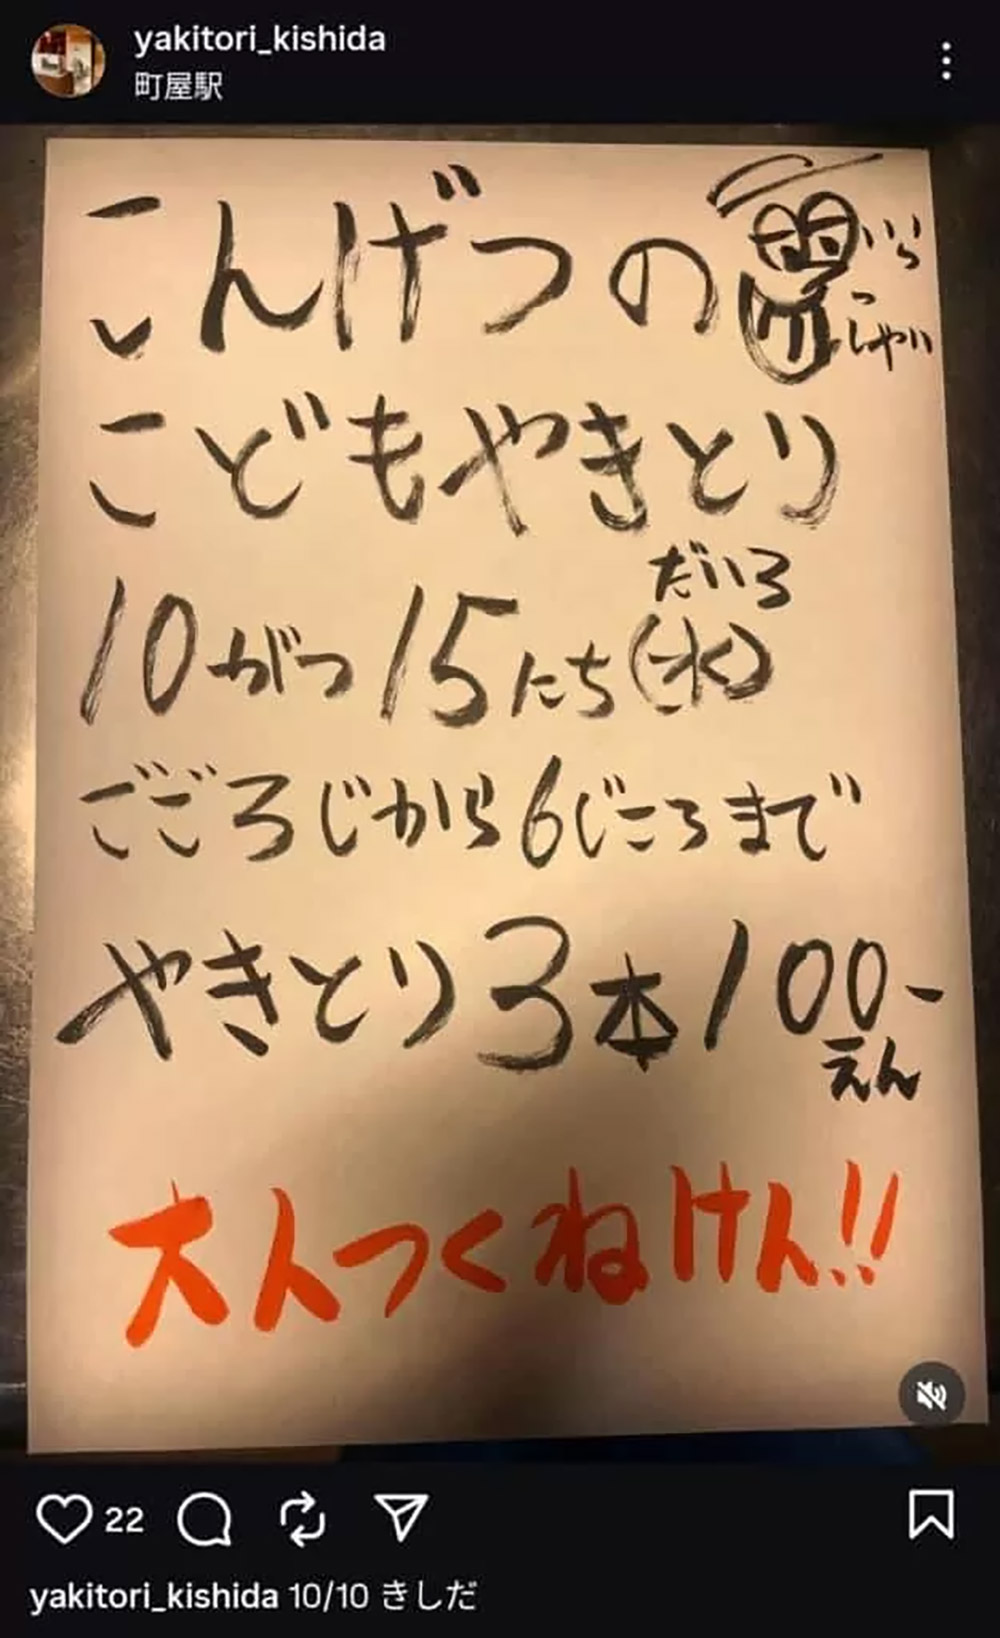 yakitori_kishida
町屋駅
こんげつの
いらっしゃい
こどもやきとり
だいろ
10がつ15にち(水)
ごごろじから6じころまで
やきとり3本100-
えん
大人つくねけん!!
22
yakitori_kishida 10/10 きしだ